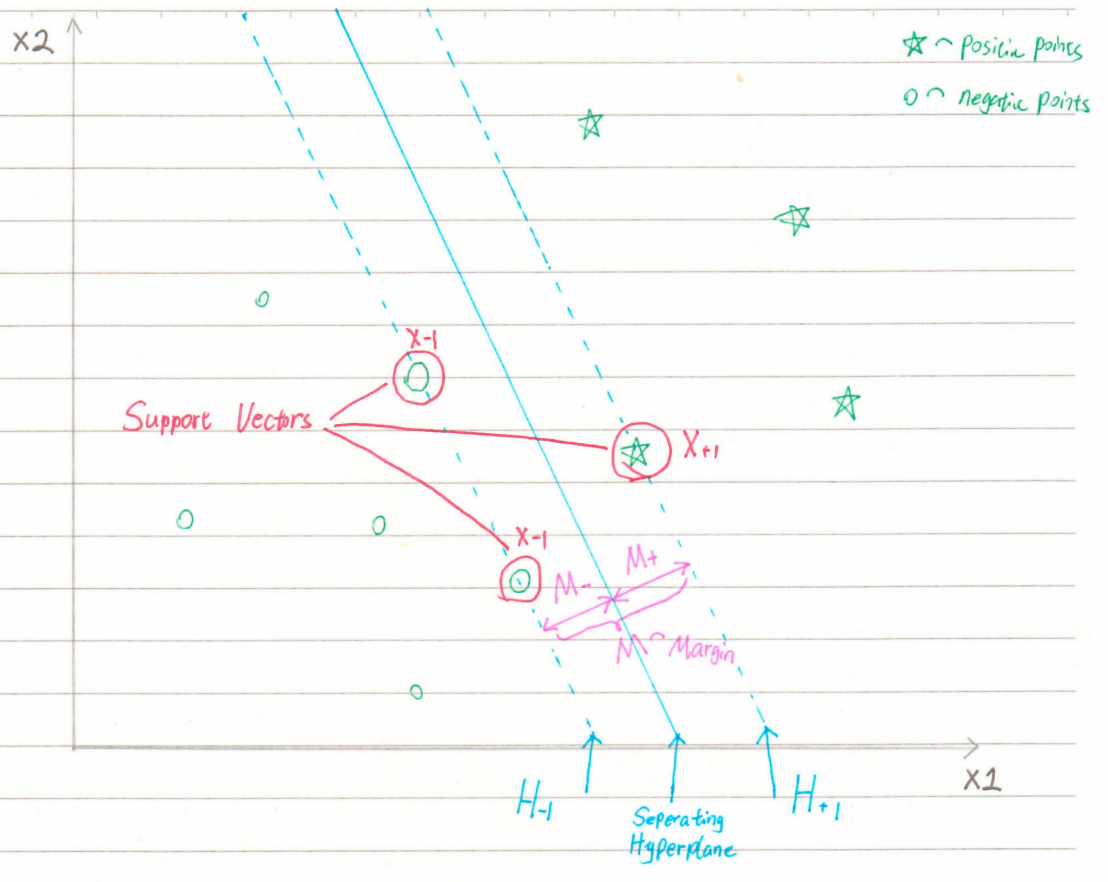 X2
~ Positive points
~ negative points
X-1
Support Vectors
X+1
X-1
M-
M+
M ~ Margin
X1
H-1
Seperating
Hyperplane
H+1